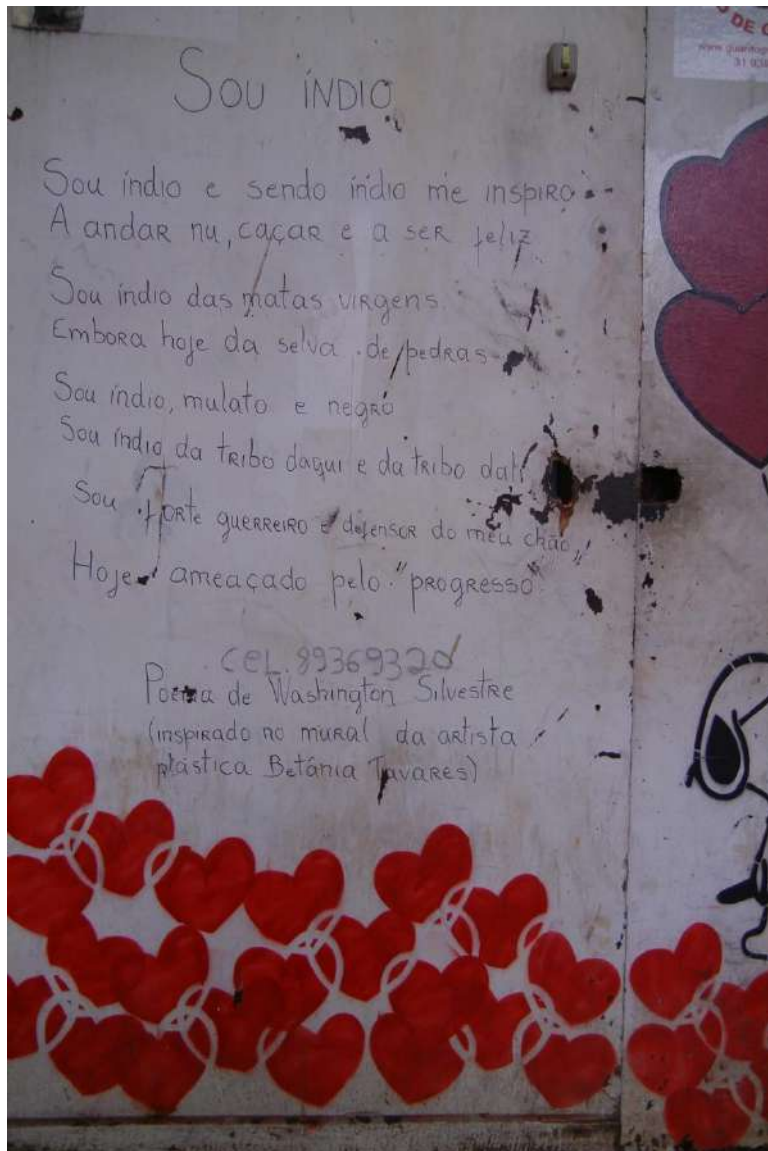 DE
31
SOU ÍNDIO
Sou índio e sendo índio me inspiro
A andar nu, caçar e a ser feliz
Sou índio das matas virgens.
Embora hoje da selva de pedras
Sou índio, mulato e negro
Sou índio da tribo daqui e da tribo dali
Sou forte guerreiro e defensor do meu chão,
Hoje ameaçado pelo "progresso"
CEL. 99369320
Poema de Washington Silvestre
(inspirado no mural da artista
plástica Betânia Tavares)